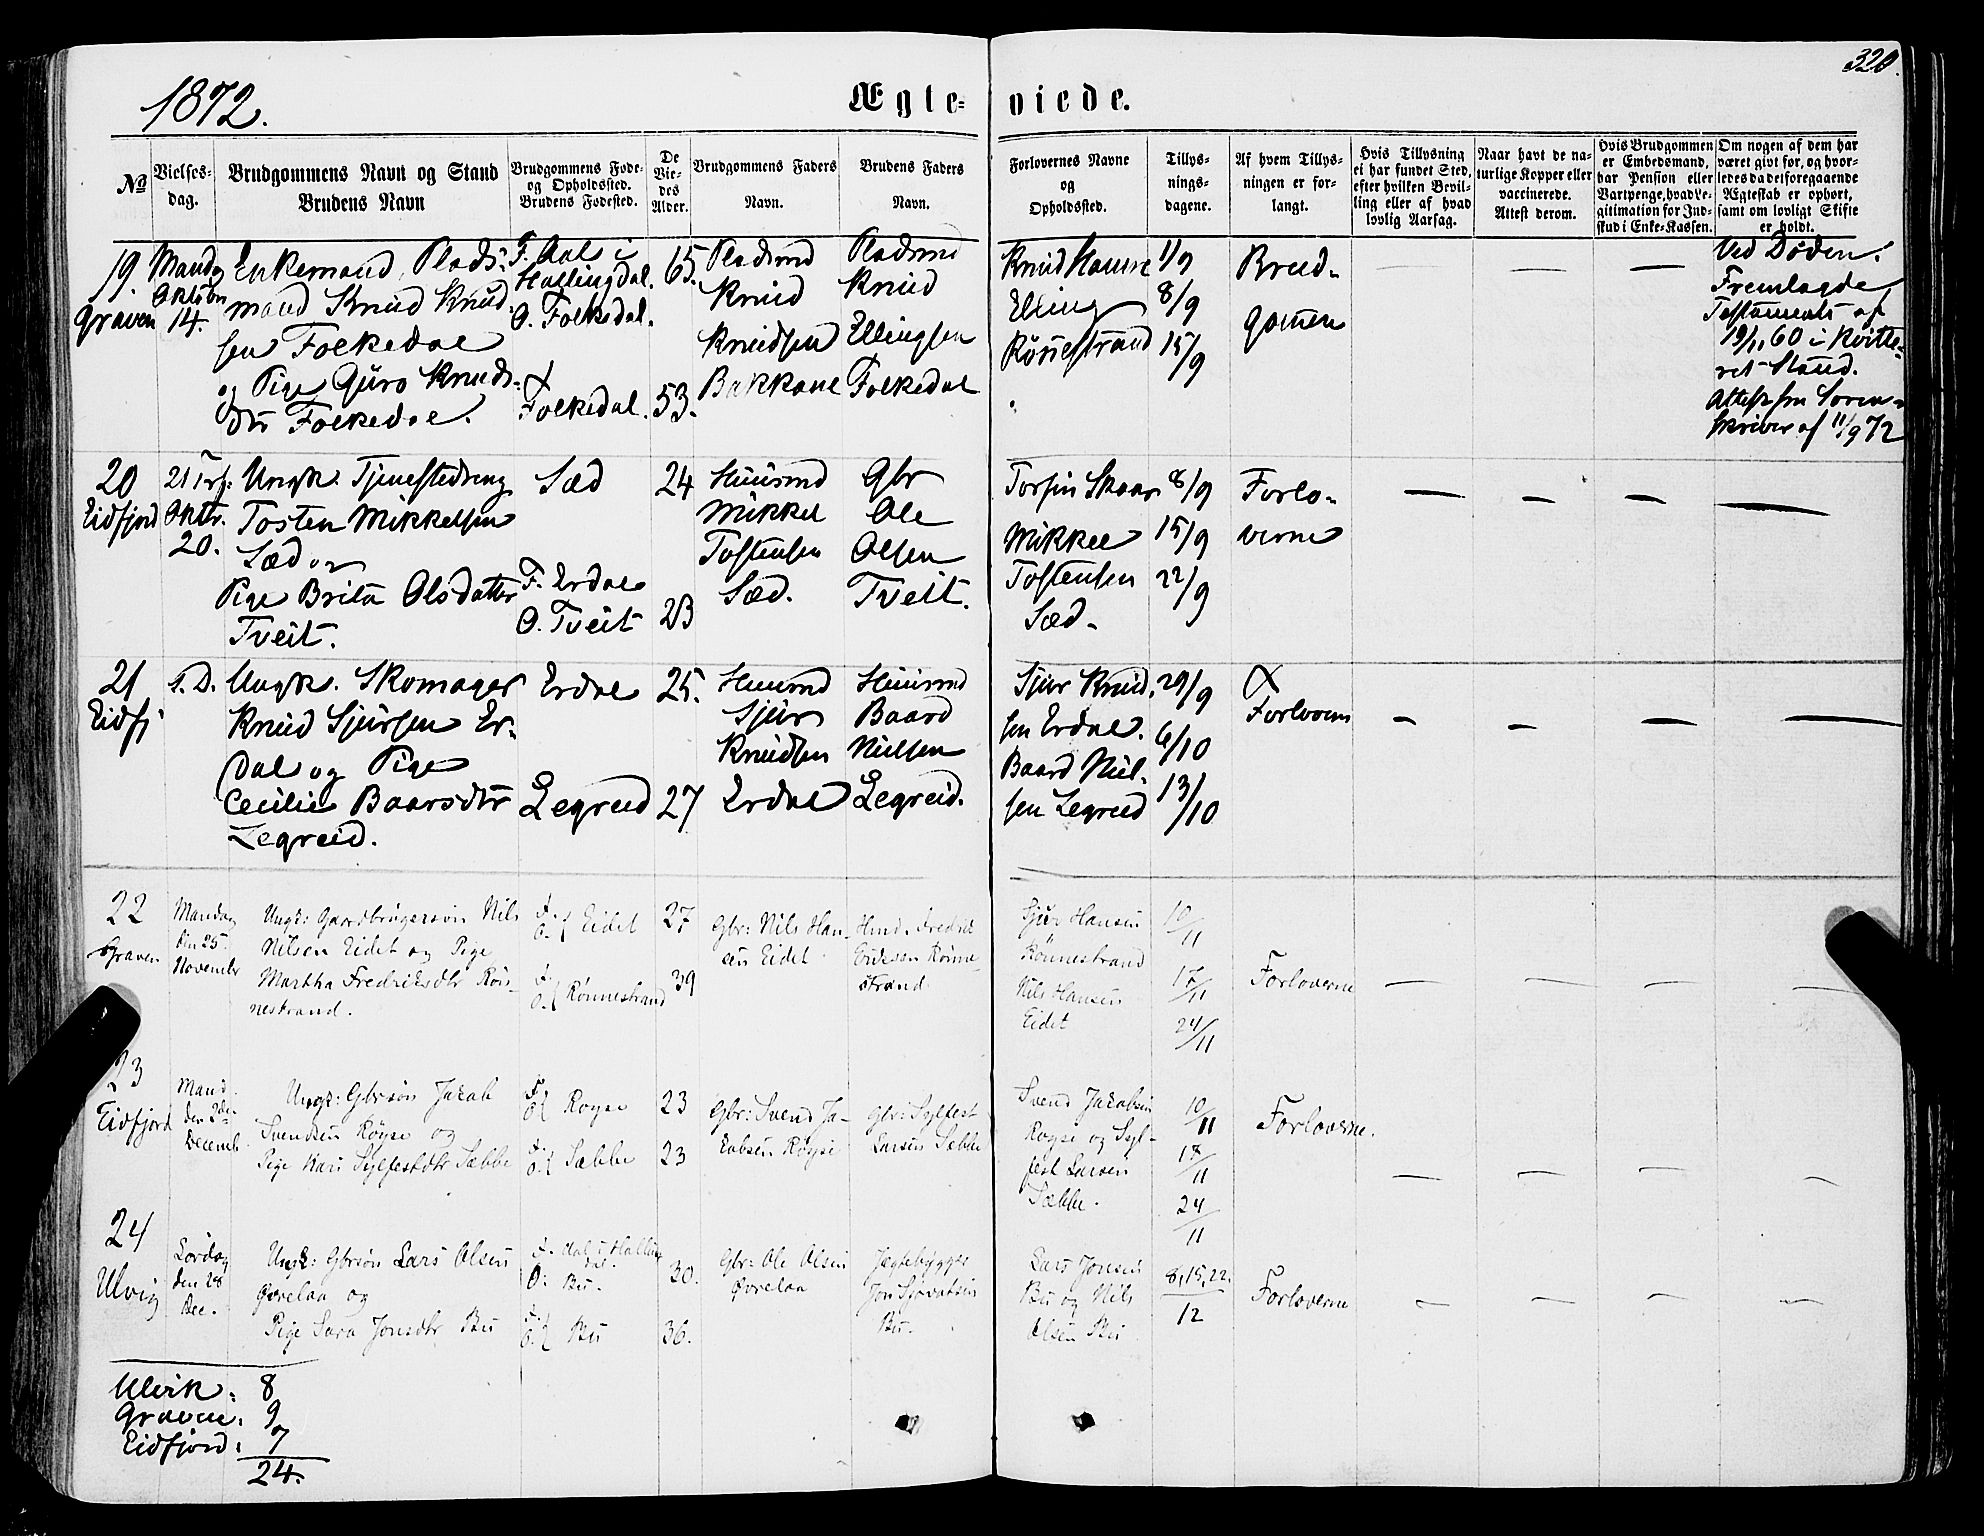 320.
1872.
Ægte- viede.
No
Vielses-
dag.
Brudgommens Navn og Stand
Brudens Navn
Brudgommens Føde-
og Opholdssted.
Brudens Fødested.
De
Vie-
des
Alder.
Brudgommens Faders
Navn.
Brudens Faders
Navn.
Forlovernes Navne
og
Opholdssted.
Tillys-
nings-
dagene.
Af hvem Tillys-
ningen er for-
langt.
Hvis Tillysning
ei har fundet Sted,
efter hvilken Bevil-
ling eller af hvad
lovlig Aarsag.
Naar havt de na-
turlige Kopper eller
vaccinerede.
Attest derom.
Hvis Brudgommen
er Embedsmand,
har Pension eller
Vartpenge, hvad Le-
gitimation for Ind-
skud i Enke-Kassen.
Om nogen af dem har
været givt før, og hvor-
ledes da det foregaaende
Ægteskab er ophørt,
samt om lovligt Skifte
er holdt.
19.
Graven
Mandg
Oktobr
14.
Enkemand, Plads-
mand Knud Knud-
sen Folkedal
og Pige Guro Knuds-
dtr Folkedal.
F. Aals i
Hallingdal.
O. Folkedal.
Folkedal.
65.
53.
Pladsmd
Knud
Knudsen
Bakkane
Pladsmd
Knud
Ellingsen
Folkedal
Knud Hamre
Elling
Rönnestrand
1/9
8/9
15/9
Brud-
gomen
Ved Døden.
Fremlagde
Testament af
19/1 60 i kvitte-
ret Stand.
Attest fra Soren-
skriver af 11/9 72
20
Eidfjord
21 Trf:
Oktbr.
20.
Ungk. Tjenestedreng
Tosten Mikkelsen
Sæd og
Pige Brita Olsdatter
Tveit.
Sæd
F. Erdal
O. Tveit
24
23
Huusmd
Mikkel
Tostensen
Sæd.
Gbr
Ole
Olsen
Tveit.
Torfin Skaar
Mikkel
Tostensen
Sæd-
8/9
15/9
22/9
Forlo-
verne
21
Eidfj
s. D.
Ungk. Skomager
Knud Sjursen Er-
dal og Pige
Cecilie Baarsdtr
Legreid.
Erdal
Legreid
25.
27
Huusmd
Sjur
Knudsen
Erdal
Huusmd
Baard
Nielsen
Legreid.
Sjur Knud-
sen Erdal.
Baard Niel-
sen Legreid
29/9
6/10
13/10
Forlovern
22
Graven
Mandag
den 25
Novembr
Ungk: Gaardbrugersøn Nils
Nilsen Eidet og Pige
Martha Fredriksdtr Røn-
nestrand.
F.
O. { Eidet
F.
O. { Rønnestrand
27
39
Gbr: Nils Han-
sen Eidet
Hmd. Fredrik
Eriksen Rønne-
strand.
Sjur Hansen
Rønnestrand
Nils Hansen
Eidet
10/11
17/11
24/11
Forloverne
23
Eidfjord
Mand.
den 2den
Decemb.
Ungk: Gbrsøn Jakob
Svendsen Røyse og
Pige Kari Sylfestdtr Sæbbe
F.
O. { Røyse
F.
O. { Sæbbe
23
23
Gbr: Svend Ja-
kobsen Røyse
Gbr: Sylfest
Larsen Sæbbe
Svend Jakobsen
Røyse og Syl-
fest Larsen
Sæbbe.
10/11
17/11
24/11
Forloverne.
24
Ulvig
Lørdag
den 28
Dec.
Ungk: Gbrsøn Lars Olsen
Øvrelaa og
Pige Sara Jonsdtr Bu
F. Aal i Halling
dal.
O: Bu.
F.
O. { Bu
30.
36.
Gbr: Ole Olsen
Øvrelaa
Jægtebygger
Jon Sjovatsen
Bu.
Lars Jonsen
Bu og Nils
Olsen Bu
8, 15, 22.
12
Forloverne
Ulvik: 8
Graven: 9
Eidfjord: 7
24.